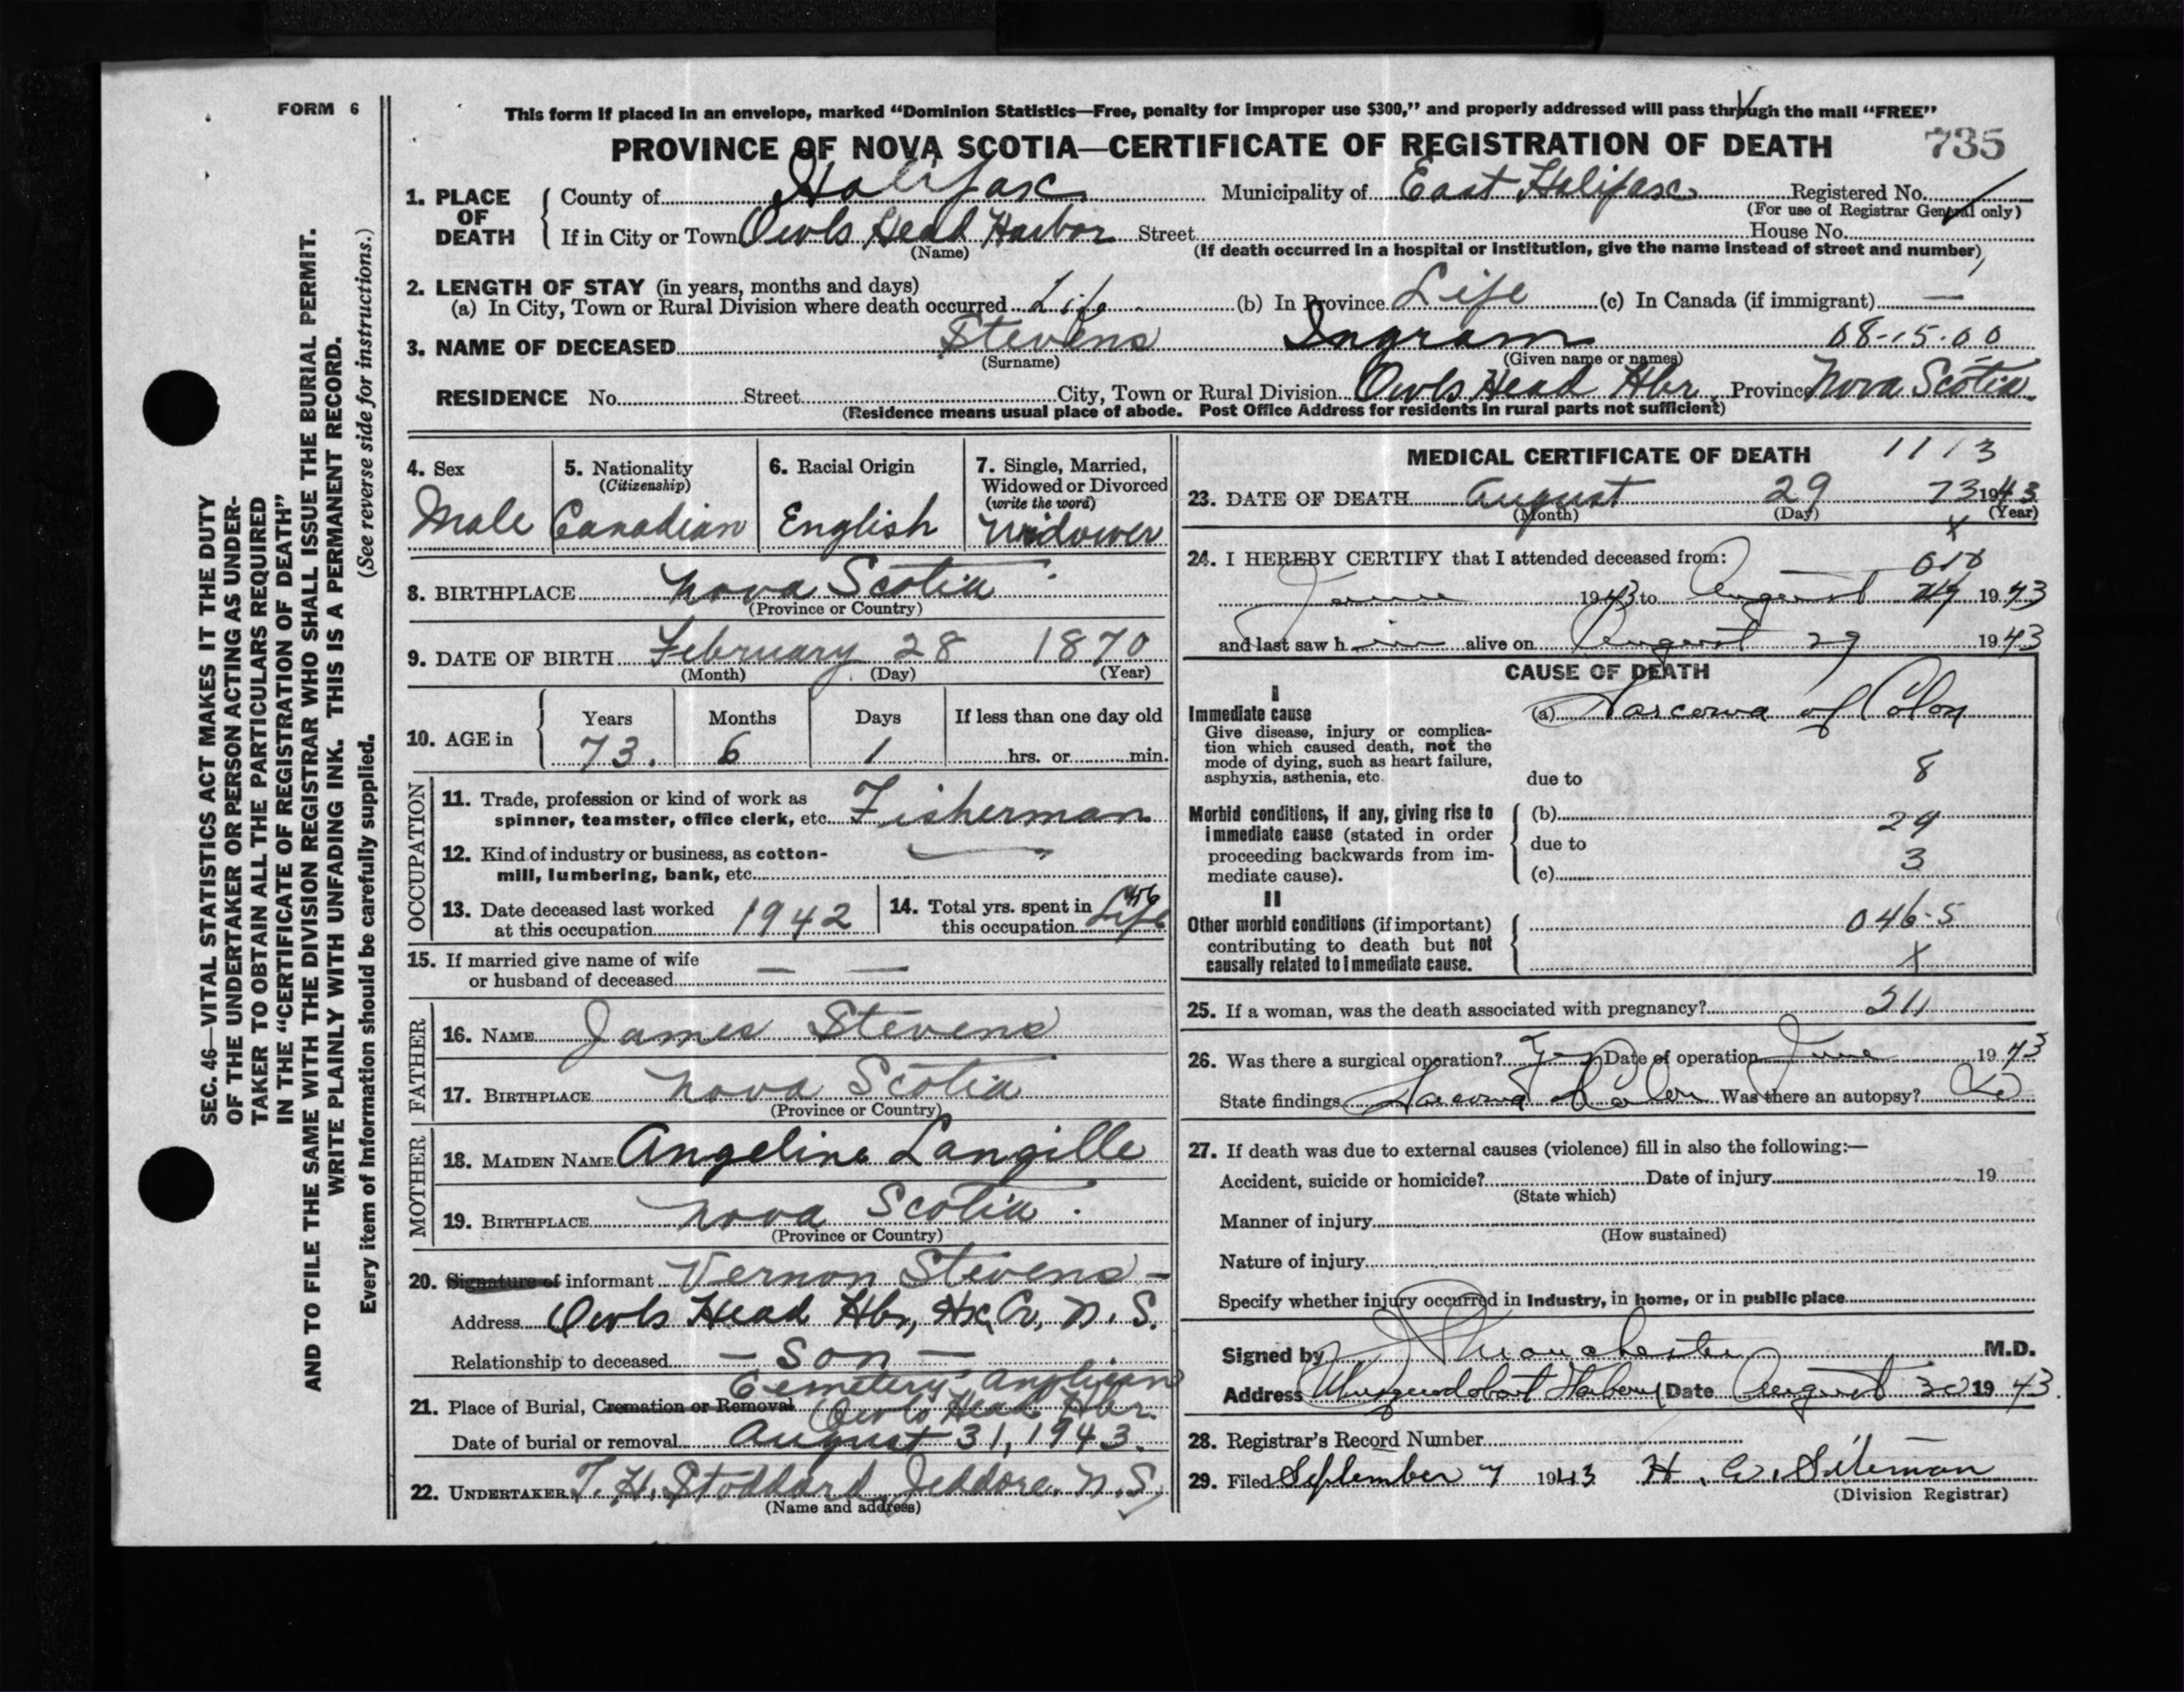 FORM 6
This form if placed in an envelope, marked “Dominion Statistics—Free, penalty for improper use $300,” and properly addressed will pass through the mail “FREE”
PROVINCE OF NOVA SCOTIA—CERTIFICATE OF REGISTRATION OF DEATH 735
1. PLACE OF DEATH County of Halifax Municipality of East Halifax Registered No.
(For use of Registrar General only)
If in City or Town Owls Head Harbor Street House No.
(Name) (If death occurred in a hospital or institution, give the name instead of street and number)
2. LENGTH OF STAY (in years, months and days)
(a) In City, Town or Rural Division where death occurred Life (b) In Province Life (c) In Canada (if immigrant) —
3. NAME OF DECEASED Stevens Ingram 08-15-00
(Surname) (Given name or names)
RESIDENCE No. Street City, Town or Rural Division Owls Head Hbr. Province Nova Scotia.
(Residence means usual place of abode. Post Office Address for residents in rural parts not sufficient)
SEC. 46—VITAL STATISTICS ACT MAKES IT THE DUTY
OF THE UNDERTAKER OR PERSON ACTING AS UNDER-
TAKER TO OBTAIN ALL THE PARTICULARS REQUIRED
IN THE “CERTIFICATE OF REGISTRATION OF DEATH”
AND TO FILE THE SAME WITH THE DIVISION REGISTRAR WHO SHALL ISSUE THE BURIAL PERMIT.
WRITE PLAINLY WITH UNFADING INK. THIS IS A PERMANENT RECORD.
Every item of information should be carefully supplied. (See reverse side for instructions.)
4. Sex 5. Nationality 6. Racial Origin 7. Single, Married,
(Citizenship) Widowed or Divorced
(write the word)
Male Canadian English Widower
8. BIRTHPLACE Nova Scotia
(Province or Country)
9. DATE OF BIRTH February 28 1870
(Month) (Day) (Year)
10. AGE in Years Months Days If less than one day old
73. 6 1 hrs. or min.
OCCUPATION
11. Trade, profession or kind of work as
spinner, teamster, office clerk, etc. Fisherman
12. Kind of industry or business, as cotton-
mill, lumbering, bank, etc. "
13. Date deceased last worked
at this occupation 1942
14. Total yrs. spent in
this occupation Life
15. If married give name of wife
or husband of deceased — —
FATHER
16. NAME James Stevens
17. BIRTHPLACE Nova Scotia
(Province or Country)
MOTHER
18. MAIDEN NAME Angeline Langille
19. BIRTHPLACE Nova Scotia
(Province or Country)
20. Signature of informant Vernon Stevens —
Address Owls Head Hbr, Hx Co, N. S.
Relationship to deceased — Son —
Cemetery Anglican
21. Place of Burial, Cremation or Removal Owls Head Hbr.
Date of burial or removal August 31, 1943.
22. UNDERTAKER T. H. Stoddard Jeddore. N. S.
(Name and address)
MEDICAL CERTIFICATE OF DEATH 1113
23. DATE OF DEATH August 29 73 1943
(Month) (Day) (Year)
X
24. I HEREBY CERTIFY that I attended deceased from:
June 1943 to August 29 1943
and last saw h im alive on August 29 1943
CAUSE OF DEATH
I
Immediate cause
Give disease, injury or complica-
tion which caused death, not the
mode of dying, such as heart failure,
asphyxia, asthenia, etc.
(a) Sarcoma of Colon
due to 8
Morbid conditions, if any, giving rise to
immediate cause (stated in order
proceeding backwards from im-
mediate cause).
(b) 29
due to
(c) 3
II
Other morbid conditions (if important)
contributing to death but not
causally related to immediate cause.
046-5
X
25. If a woman, was the death associated with pregnancy? 211
26. Was there a surgical operation? Yes Date of operation June 1943
State findings Sarcoma of Colon Was there an autopsy? No
27. If death was due to external causes (violence) fill in also the following:—
Accident, suicide or homicide? Date of injury 19
(State which)
Manner of injury
(How sustained)
Nature of injury
Specify whether injury occurred in Industry, in home, or in public place
Signed by Manchester M.D.
Address Musquodoboit Harbour Date August 30 1943.
28. Registrar's Record Number —
29. Filed September 7 1943 H. W. Siteman
(Division Registrar)